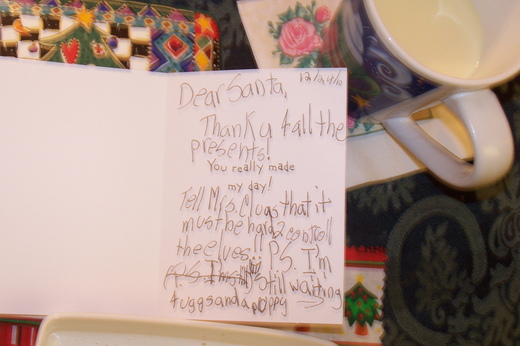 12/24/10
Dear Santa,
Thank u 4 all the
presents!
You really made
my day!
Tell Mrs. Claus that it
must be hard 2 controll
the elves. P.S. I'm
still waiting
4 uggs and a puppy